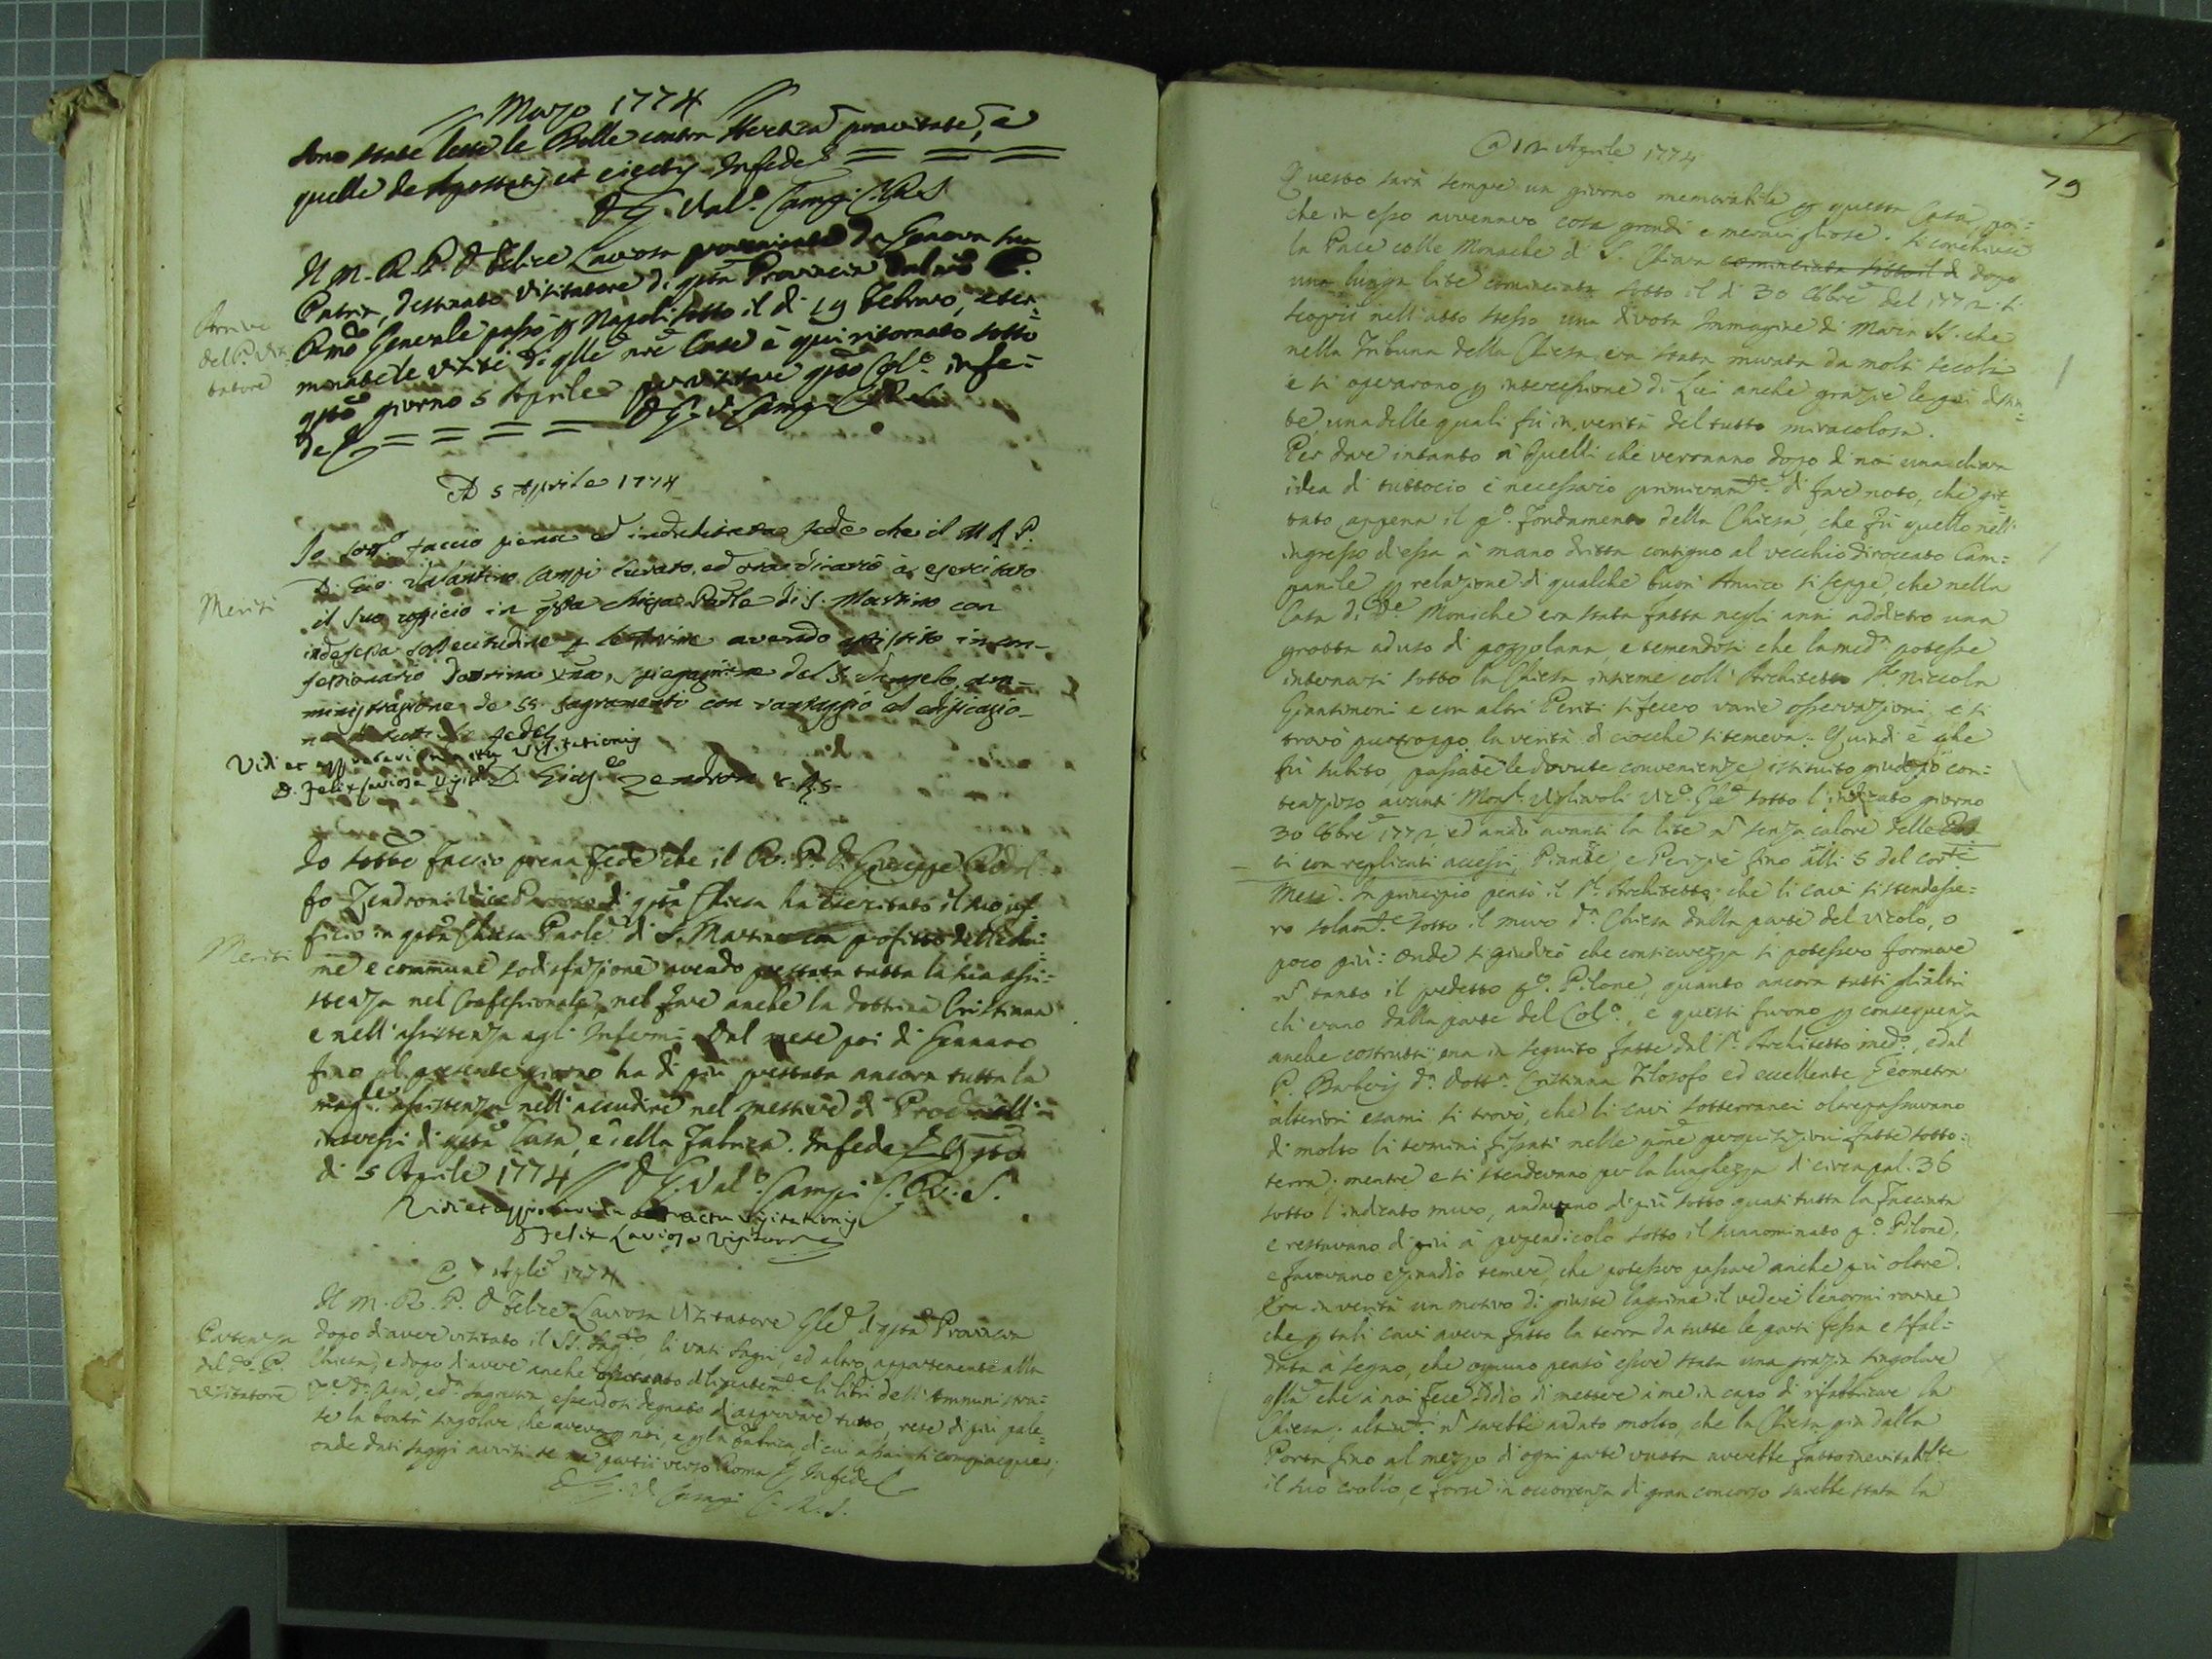 Marzo 1774
Sono state lette le Bolle contra Hereticā pravitatē, e
quelle de Apostatis et eiectis. Infede
D. G. Val.o Campi C.R.S.
Il M. R. P. D. Felice Laviosa proveniente da Genova sua
Patria, destinato Visitatore di qsta Provincia dal nrõ P.
Rmõ Generale passò p Napoli sotto il di 19 Febraro, e ter=
minate le visite di qlle nrẽ Case è qui ritornato sotto
qsto giorno 5 Aprile per visitare qsto Col.o infe=
de
D. G. V. Campi C.R.S.
Arrivo
del P. Visi
tatore
A 5 Aprile 1774
Io sotto faccio piena ed indubitata fede che il M R P.
D. Gio. Valantino Campi Curato, ed ordinario à esercitato
il suo officio in qsta chiesa Parle di S. Martino con
indefessa sollecitudine p le anime avendo assistito in con-
fessionario Dottrina Xna, spiegazione del S. Vangelo, am-
ministrazione de SS. Sagramenti con vantaggio ed edificazio-
ne di tutti li fedeli
Meriti
Vidi et approbavi in actu Visitationis
D. Felix Laviosa Visit.r D. Gius.e Zendroni C.R.S.
Io sottõ faccio piena fede che il R. P. D. Giuseppe Rodol
fo Zendroni Vice Parroco di qsta Chiesa ha esercitato il suo uf=
ficio in qsta Chiesa Parle di S. Martino con profitto delle Ani=
me e commune sodisfazione avendo prestata tutta la sua assi=
stenza nel Confessionale, nel fare anche la dottrina Cristiana
e nell'assistenza agl'Infermi. Dal mese poi di Gennaro
fino al presente giorno ha di più prestata ancora tutta la
magle assistenza nell'accudire nel mestiere di Prode agl'
interessi di qsta Casa, e della Fabrica. Infede qsto
di 5 Aprile 1774 D. G. Val.o Campi C.R.S.
Meriti
Vidi et approbavi in actu Visitationis
D Felix Laviosa Visitator
A 7 Aple 1774
Il M. R. P. D Felice Laviosa Visitatore Gle di qsta Provincia
dopo di avere visitato il SS. Sagto, li vasi sagri, ed altro appartenente alla
Chiesa, e dopo di avere anche osservato diligentemte li libri dell'Amministra=
ze di Casa, ed Sagrestia essendosi degnato di approvare tutto, rese di più pale=
se la bontà singolare che aveva p noi, e p la Fabrica, di cui assai si compiacque;
onde dati saggi avvisi se ne partii verso Roma. Infede
D G. V. Campi C.R.S.
Partenza
del do P.
Visitatore
79
A 12 Aprile 1774
Questo sarà sempre un giorno memorabile p questa Casa, poi=
che in esso avvennero cose grandi e meravigliose. Si conchiuse
la Pace colle Monache di S. Chiara cominciata sotto il di dopo
una lunga lite cominciata sotto il di 30 8bre del 1772. Si
scoprii nell'atto stesso una divota Immagine di Maria SS. che
nella Tribuna della Chiesa era stata murata da molti secoli
e si operarono p intercessione di Lei anche grazie le più distin=
te, una delle quali fù in verità del tutto miracolosa.
Per dare intanto à Quelli che veranno dopo di noi una chiara
idea di tuttociò è necessario primieramte di fare noto, che git=
tato appena il po fondamento della Chiesa, che fù quello nell'
ingresso d'essa à mano dritta contiguo al vecchio diroccato Cam=
panile p relazione di qualche buon Amico si seppe, che nella
Casa di de Moniche era stata fatta negli anni addietro una
grotta ad uso di pozzolana, e temendosi che la meda potesse
internarsi sotto la Chiesa insieme coll'Architetto Sr. Niccola
Giansimoni e con altri Periti si fecero varie osservazioni, e si
trovò purtroppo la verità di ciocche si temeva. Quindi è che
fù subito, passate le dovute convenienze, istituito giudizio con=
tenzioso avanti Monsr. Viglivoli Vic. Gle sotto l'indicato giorno
30 8bre 1772, ed andò avanti la lite nō senza calore delle Par
ti con replicati accessi, Piante, e Perizie fino alli 5 del corte
Mese. In principio pensò il Sr. Architetto, che li cavi si stendesse=
ro solamte sotto il muro da Chiesa dalla parte del vicolo, o
poco più: Onde si giudicò che con sicurezza si potessero formare
nō tanto il predetto po. Pilone, quanto ancora tutti gli altri
ch'erano dalla parte del Colo, e questi furono p conseguenza
anche costrutti; ma in seguito fatte dal Sr. Architetto medo, e dal
P. Barberis da Dotta Cristiana Filosofo ed eccellente Geometra
alteriori esami si trovò, che li cavi sotterranei oltrepassavano
di molto li termini fissati nelle pme perquisizioni fatte sotto=
terra; mentre e si stendevano per la lunghezza di circa pal. 36
sotto l'indicato muro, andavano di più sotto quasi tutta la facciata
e restavano di più à perpendicolo sotto il sunnominato po Pilone,
e facevano eziandio temere, che potessero passare anche più oltre.
Era in verità un motivo di giuste lagrime il vedere l'enormi rovine
che p tali cavi aveva fatto la terra da tutte le parti fessa e sfal=
data à segno, che ognuno pensò essere stata una grazia singolare
qlla che à noi fece Iddio di mettere à me in capo di rifabbricare la
Chiesa; altimti nō sarebbe andato molto, che la Chiesa gia dalla
Porta fino al mezzo di ogni parte vasta averebbe fatto inevitabilte
il suo crollo, e forse in occorrenza di gran concorso sarebbe stata la